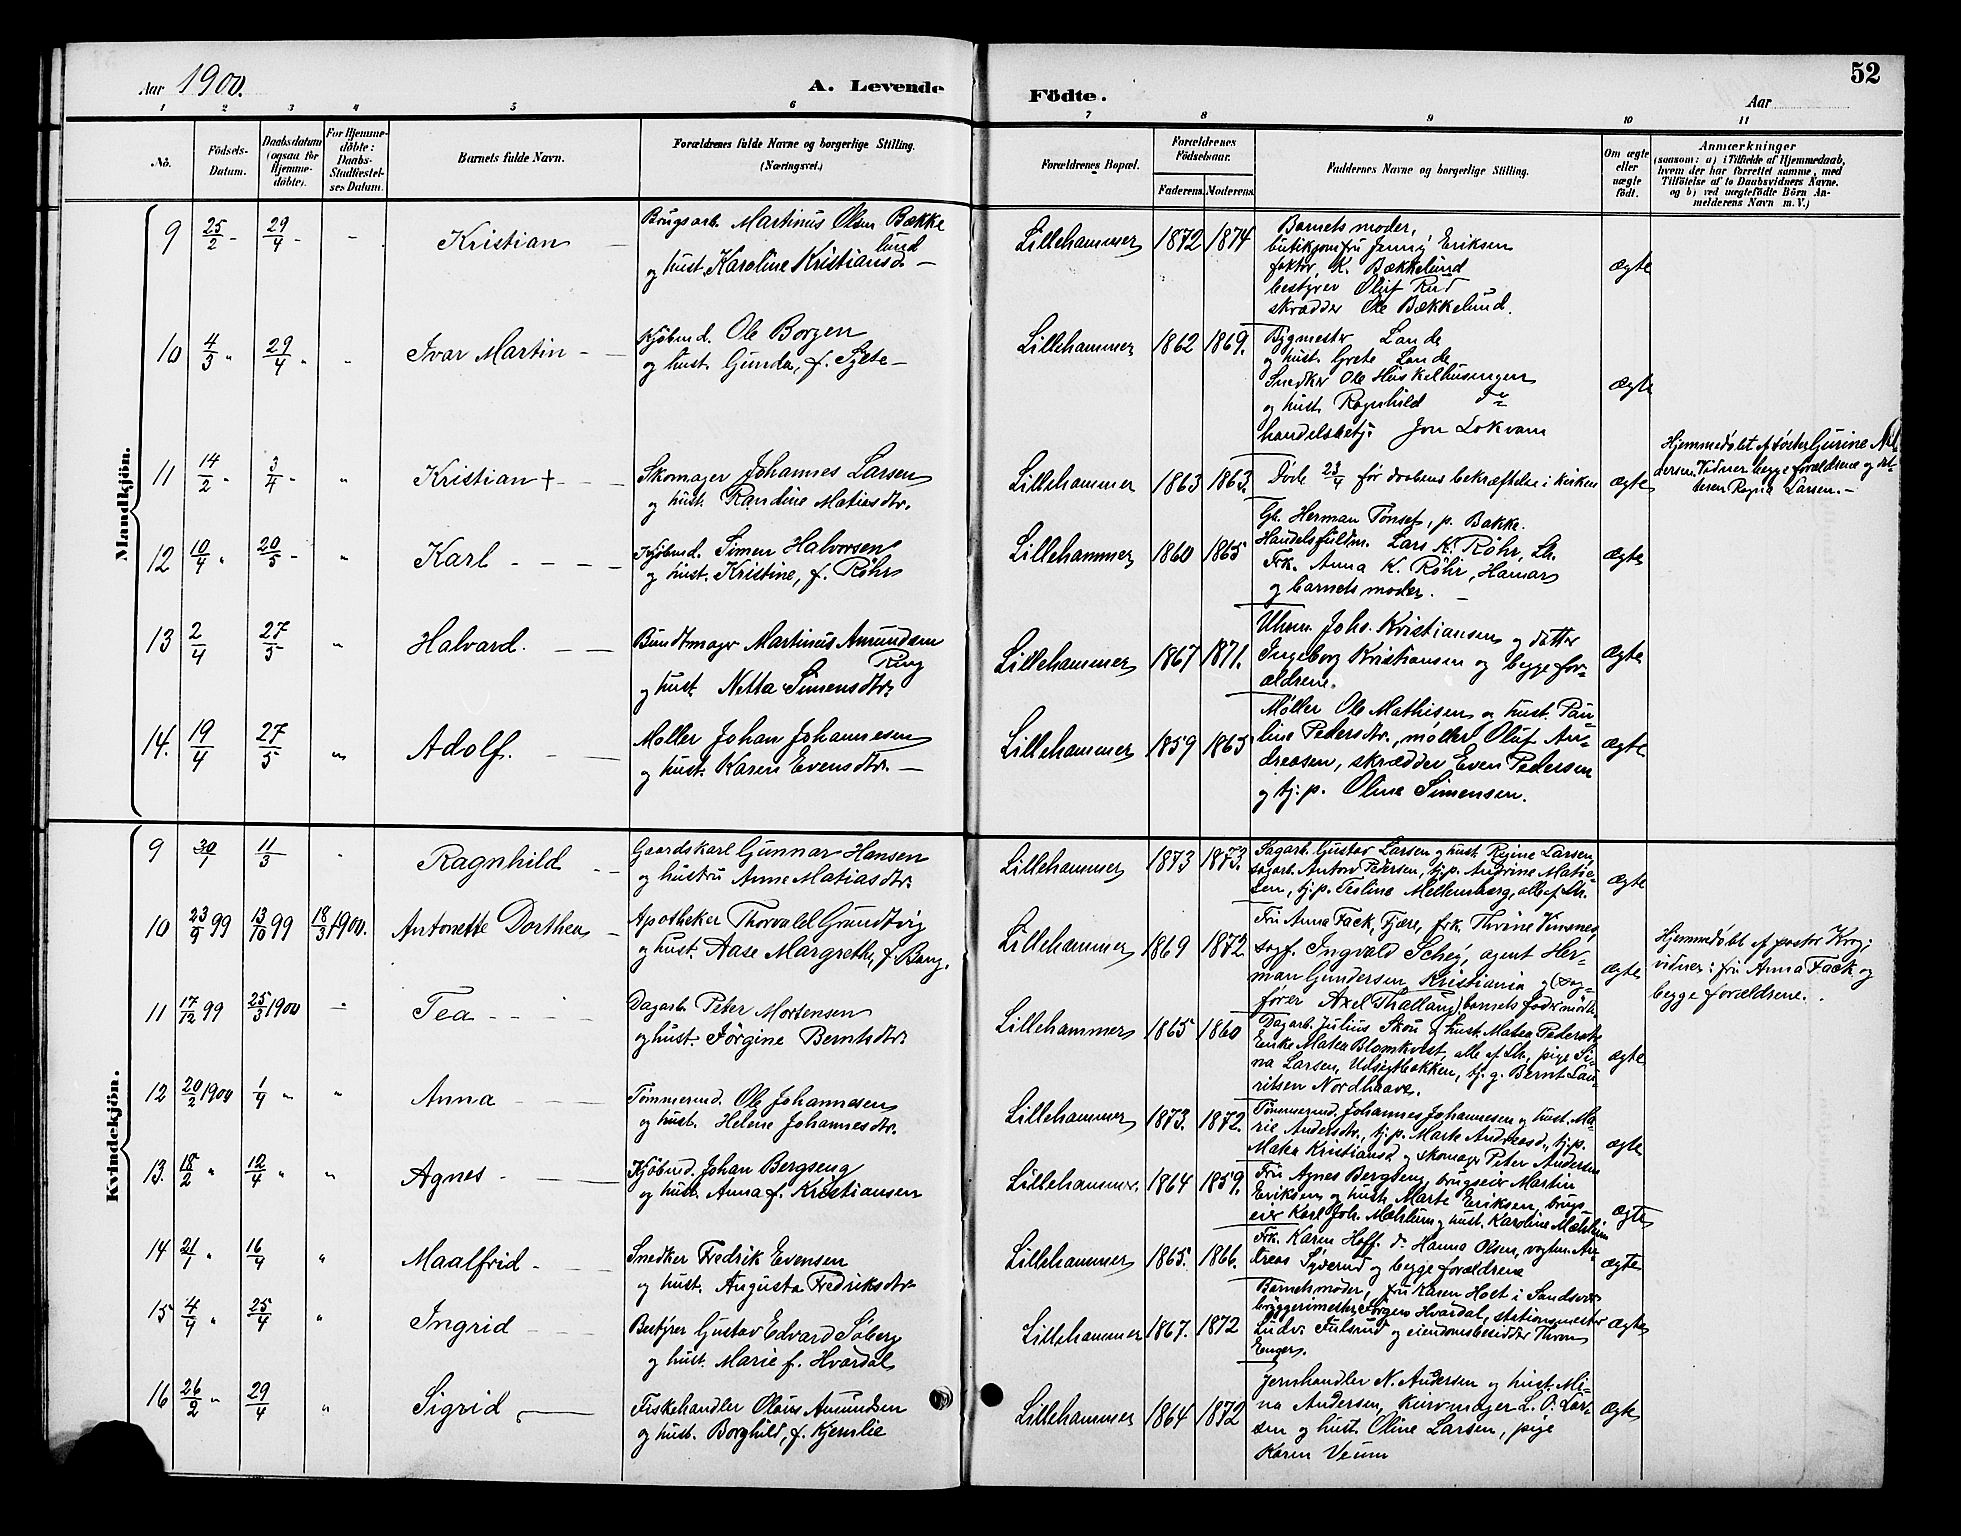 52
Aar 1900.
A. Levende
Födte.
Aar
1 2 3 4 5 6 7 8 9 10 11
No.
Födsels-
Datum.
Daabsdatum
(ogsaa for
Hjemme-
döbte).
For Hjemme-
döbte:
Daabs-
Stadfæstel-
ses Datum.
Barnets fulde Navn.
Forældrenes fulde Navne og borgerlige Stilling.
(Næringsvei.)
Forældrenes Bopæl.
Forældrenes
Födselsaar.
Faderens. Moderens.
Faddernes Navne og borgerlige Stilling.
Om ægte
eller
uægte
født.
Anmærkninger
(saasom: a) i Tilfælde af Hjemmedaab,
hvem der har forrettet samme, med
Tilföielse af to Daabsvidners Navne.
og b) ved uægtefödte Börn An-
melderens Navn m. V.)
Mandkjön.
9 25/2 - 29/4 - - Kristian
Brugsarb. Martinus Olsen Bække
lund
og hust. Karoline Kristiansd. -
Lillehammer 1872 1874
Barnets moder,
butikjomfru Jenny Eriksen
faktor K. Bækkelund
bestyrer Oluf Rud
skrædder Ole Bækkelund.
ægte
10 4/3 " 29/4 " " Ivar Martin -
Kjøbmd. Ole Borgen
og hust. Gunda, f. Sylte -
Lillehammer 1862 1869.
Bygmester Lande
og hust. Grete Lande
Snedker Ole Huskelhusengen
og hust. Ragnhild do
handelsbetj. Jon Lokvam
ægte
11 14/2 " 3/4 " " Kristian +
Skomager Johannes Larsen
og hust. Randine Matiasdtr.
Lillehammer 1863 1863.
Døde 23/4 før daabens bekræftelse i kirken
ægte
Hjemmedøbt af søster Gurine
Vidner begge forældrene og
Ragna Larsen. -
12 10/4 " 20/5 - " Karl
Kjøbmd. Simen Halvorsen
og hust. Kristine, f. Röhr
Lillehammer 1860 1865
Gb. Herman Tønset, p. Bakke.
Handelsfuldm. Lars K. Röhr, Lh.
Frk. Anna K. Röhr, Hamar
og barnets moder. -
ægte
13 2/4 27/5 " Halvard.
Bundtmager Martinus Amundsen
Ring
og hust. Netta Simensdtr.
Lillehammer 1867 1871.
Uhrm. Johs. Kristiansen og datter
Ingeborg Kristiansen og begge for-
ældrene.
ægte
14. 19/4 27/5 " Adolf.
Møller Johan Johannesen
og hust. Karen Evensdtr. -
Lillehammer 1859 1865
Møller Ole Mathisen og hust. Pau-
line Pedersdtr., møller Oluf An-
dreasen, skrædder Even Pedersen
og tj.p. Oline Simensen.
ægte
Kvindekjön.
9 30/1 11/3 " Ragnhild
Gaardskarl Gunnar Hansen
og hustru Anne Matiasdtr.
Lillehammer 1873 1873.
Sagarb. Gustav Larsen og hust. Regine Larsen,
sagarb. Anton Petersen, tj.p. Andrine Matie-
sen, tj.p. Teoline Mellemberg, alle af Lh.
ægte
10 23/9 99 13/10 99 18/3 1900. Antonette Dorthea
Apotheker Thorvald Grundtvig
og hust. Aase Margrethe, f. Bang.
Lillehammer 1869 1872.
Fru Anna Fack, Fjære, frk. Thrine Vinsnes,
sagf. Ingvald Schej, agent Her-
man Gundersen, Kristiania og (sag-
fører Axel Thallaug) barnets
ægte
Hjemmedøbt af pastor Krog;
vidner: fru Anna Fack og
begge forældrene.
11 17/12 99 25/3 1900 - Tea
Dagarb. Peter Mortensen
og hust. Jörgine Berntsdtr.
Lillehammer 1865 1860
Dagarb. Julius Skou og hust. Matea Pedersdtr.
Enke Matea Blomkvist, alle af Lh., pige Si-
na Larsen, Udsigtbakken, tj.g. Bernt Lau-
ritsen Nordhaave.
ægte
12 20/2 1900 1/4 " " Anna
Tømmermd. Ole Johannesen
og hust. Helene Johannesdtr.
Lillehammer 1873. 1872.
Tømmermd. Johannes Johannesen og hust. Ma-
rie Andersdtr., tj.p. Marte Andreasd., tj.p.
Matea Kristiansd. og skomager Peter Andersen
ægte
13. 18/2 " 12/4 " " Agnes
Kjøbmd. Johan Bergseng
og hust. Anna f. Kristiansen
Lillehammer. 1864 1859.
Fru Agnes Bergseng, brugseier Martin
Eriksen og hust. Marte Eriksen, brugs-
eier Karl Joh. Mæhlum og hust. Karoline Mæhlum
ægte
14 21/1 " 16/4 " Maalfrid
Snedker Fredrik Evensen
og hust. Augusta Fredriksdtr.
Lillehammer 1865. 1866.
Frk. Karen Hoff. do Hanna Olsen, vogtm. An-
dreas Syverud og begge forældrene
ægte
15 4/4 " 25/4 " Ingrid
Bestyrer Gustav Edvard Søberg
og hust. Marie f. Hvardal
Lillehammer 1867. 1872
Barnets moder, fru Karen Host i Sandsvær
bryggerimester Jörgen Hvardal, stationsmester
Ludv. Fulsrud og eiendomsbesidder Thron
Enger.
ægte
16 26/2 " 29/4 " Sigrid
Fiskehandler Olaus Amundsen
og hust. Borghild, f. Kjenslie
Lillehammer 1864 1872
Jernhandler N. Andersen og hust. Mi-
na Andersen, kurvmager L. O. Lar-
sen og hust. Oline Larsen, pige
Karen Veum
ægte